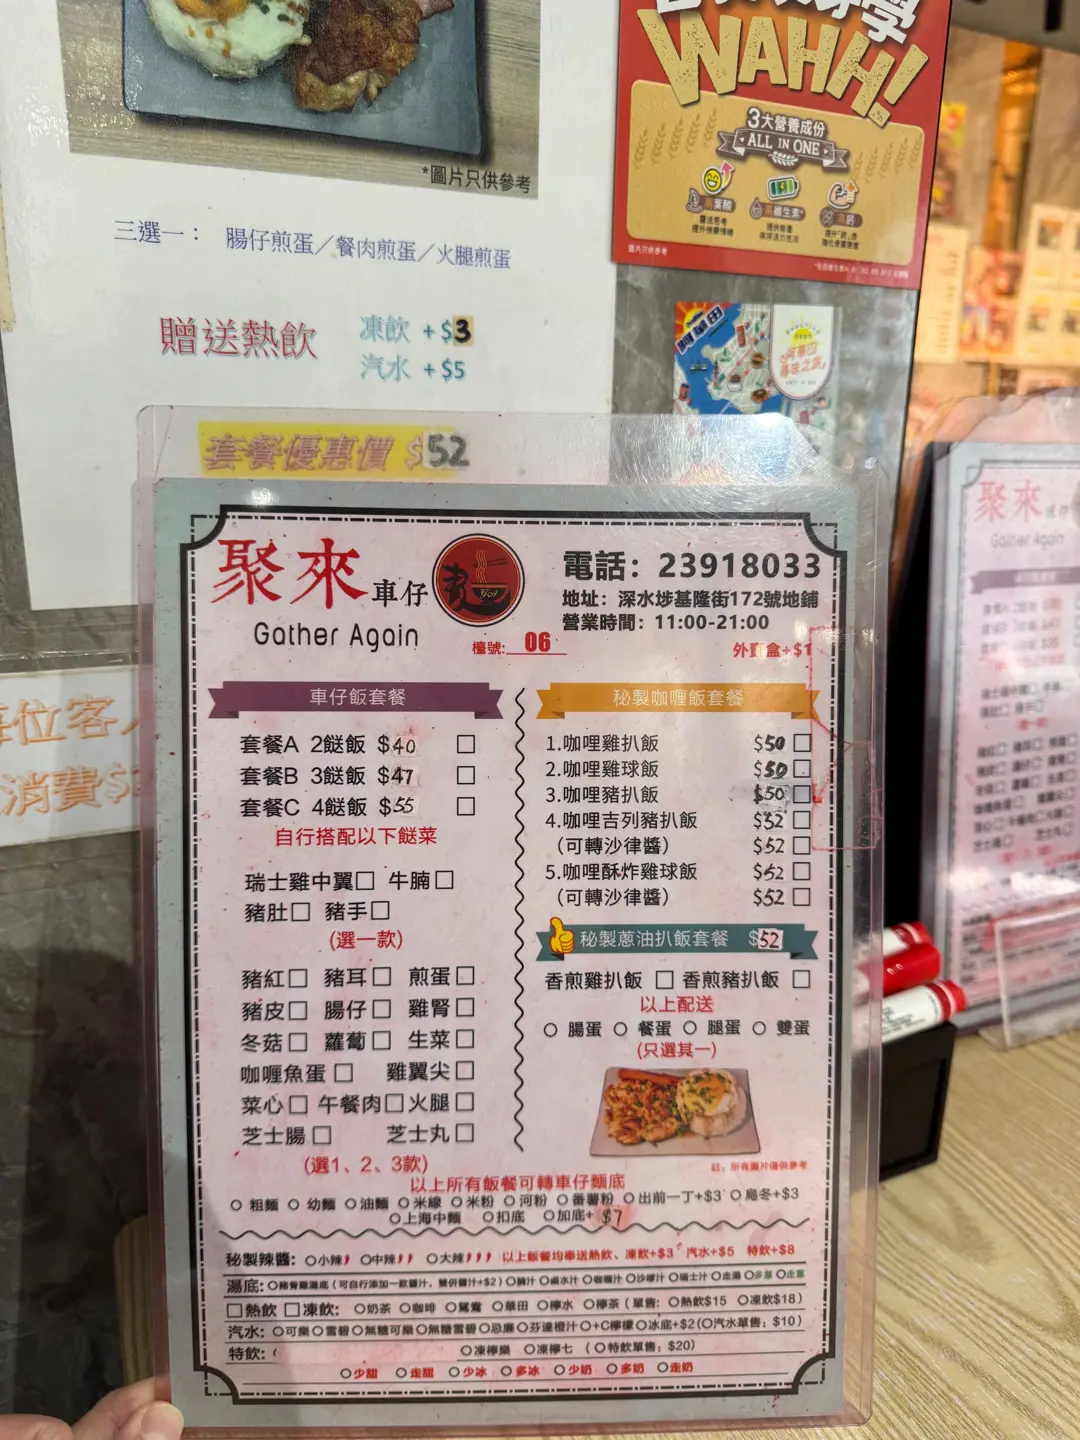 *圖片只供參考
三選一： 腸仔煎蛋／餐肉煎蛋／火腿煎蛋
贈送熱飲
凍飲 +$3
汽水 +$5
套餐優惠價 $52
WAHH!
3大營養成份
ALL IN ONE
圖片只供參考
每位客人
消費$
聚來車仔
Gather Again
電話：23918033
地址：深水埗基隆街172號地鋪
營業時間：11:00-21:00
檯號: 06
外賣盒+$1
車仔飯套餐
套餐A 2餸飯 $40 □
套餐B 3餸飯 $47 □
套餐C 4餸飯 $55 □
自行搭配以下餸菜
瑞士雞中翼□ 牛腩□
豬肚□ 豬手□
(選一款)
豬紅□ 豬耳□ 煎蛋□
豬皮□ 腸仔□ 雞腎□
冬菇□ 蘿蔔□ 生菜□
咖喱魚蛋□ 雞翼尖□
菜心□ 午餐肉□ 火腿□
芝士腸□ 芝士丸□
(選1、2、3款)
秘製咖喱飯套餐
1.咖哩雞扒飯 $50 □
2.咖哩雞球飯 $50 □
3.咖哩豬扒飯 $50 □
4.咖哩吉列豬扒飯 $52 □
（可轉沙律醬） $52 □
5.咖哩酥炸雞球飯 $52 □
（可轉沙律醬） $52 □
秘製蔥油扒飯套餐 $52
香煎雞扒飯 □ 香煎豬扒飯 □
以上配送
○ 腸蛋 ○ 餐蛋 ○ 腿蛋 ○ 雙蛋
(只選其一)
註：所有圖片僅供參考
以上所有飯餐可轉車仔麵底
○ 粗麵 ○ 幼麵 ○ 油麵 ○ 米線 ○ 米粉 ○ 河粉 ○ 番薯粉 ○ 出前一丁+$3 ○ 烏冬+$3
○上海中麵 ○扣底 ○加底+ $7
秘製辣醬： ○小辣 ○中辣 ○大辣 以上飯餐均奉送熱飲、凍飲+$3 汽水+$5 特飲+$8
湯底：○豬骨雞湯底（可自行添加一款醬汁，雙併醬汁+$2）○腩汁 ○鹵水汁 ○咖喱汁 ○沙嗲汁 ○瑞士汁 ○走湯 ○多蔥 ○走蔥
□熱飲 □凍飲： ○奶茶 ○咖啡 ○鴛鴦 ○華田 ○檸水 ○檸茶（單售: ○熱飲$15 ○凍飲$18）
汽水: ○可樂 ○雪碧 ○無糖可樂 ○無糖雪碧 ○忌廉 ○芬達橙汁 ○+C檸檬 ○冰底+$2 (○汽水單售；$10)
特飲: ○凍檸樂 ○凍檸七 (○特飲單售；$20)
○少甜 ○走甜 ○少冰 ○多冰 ○少奶 ○多奶 ○走奶
聚來車仔
Gather Again